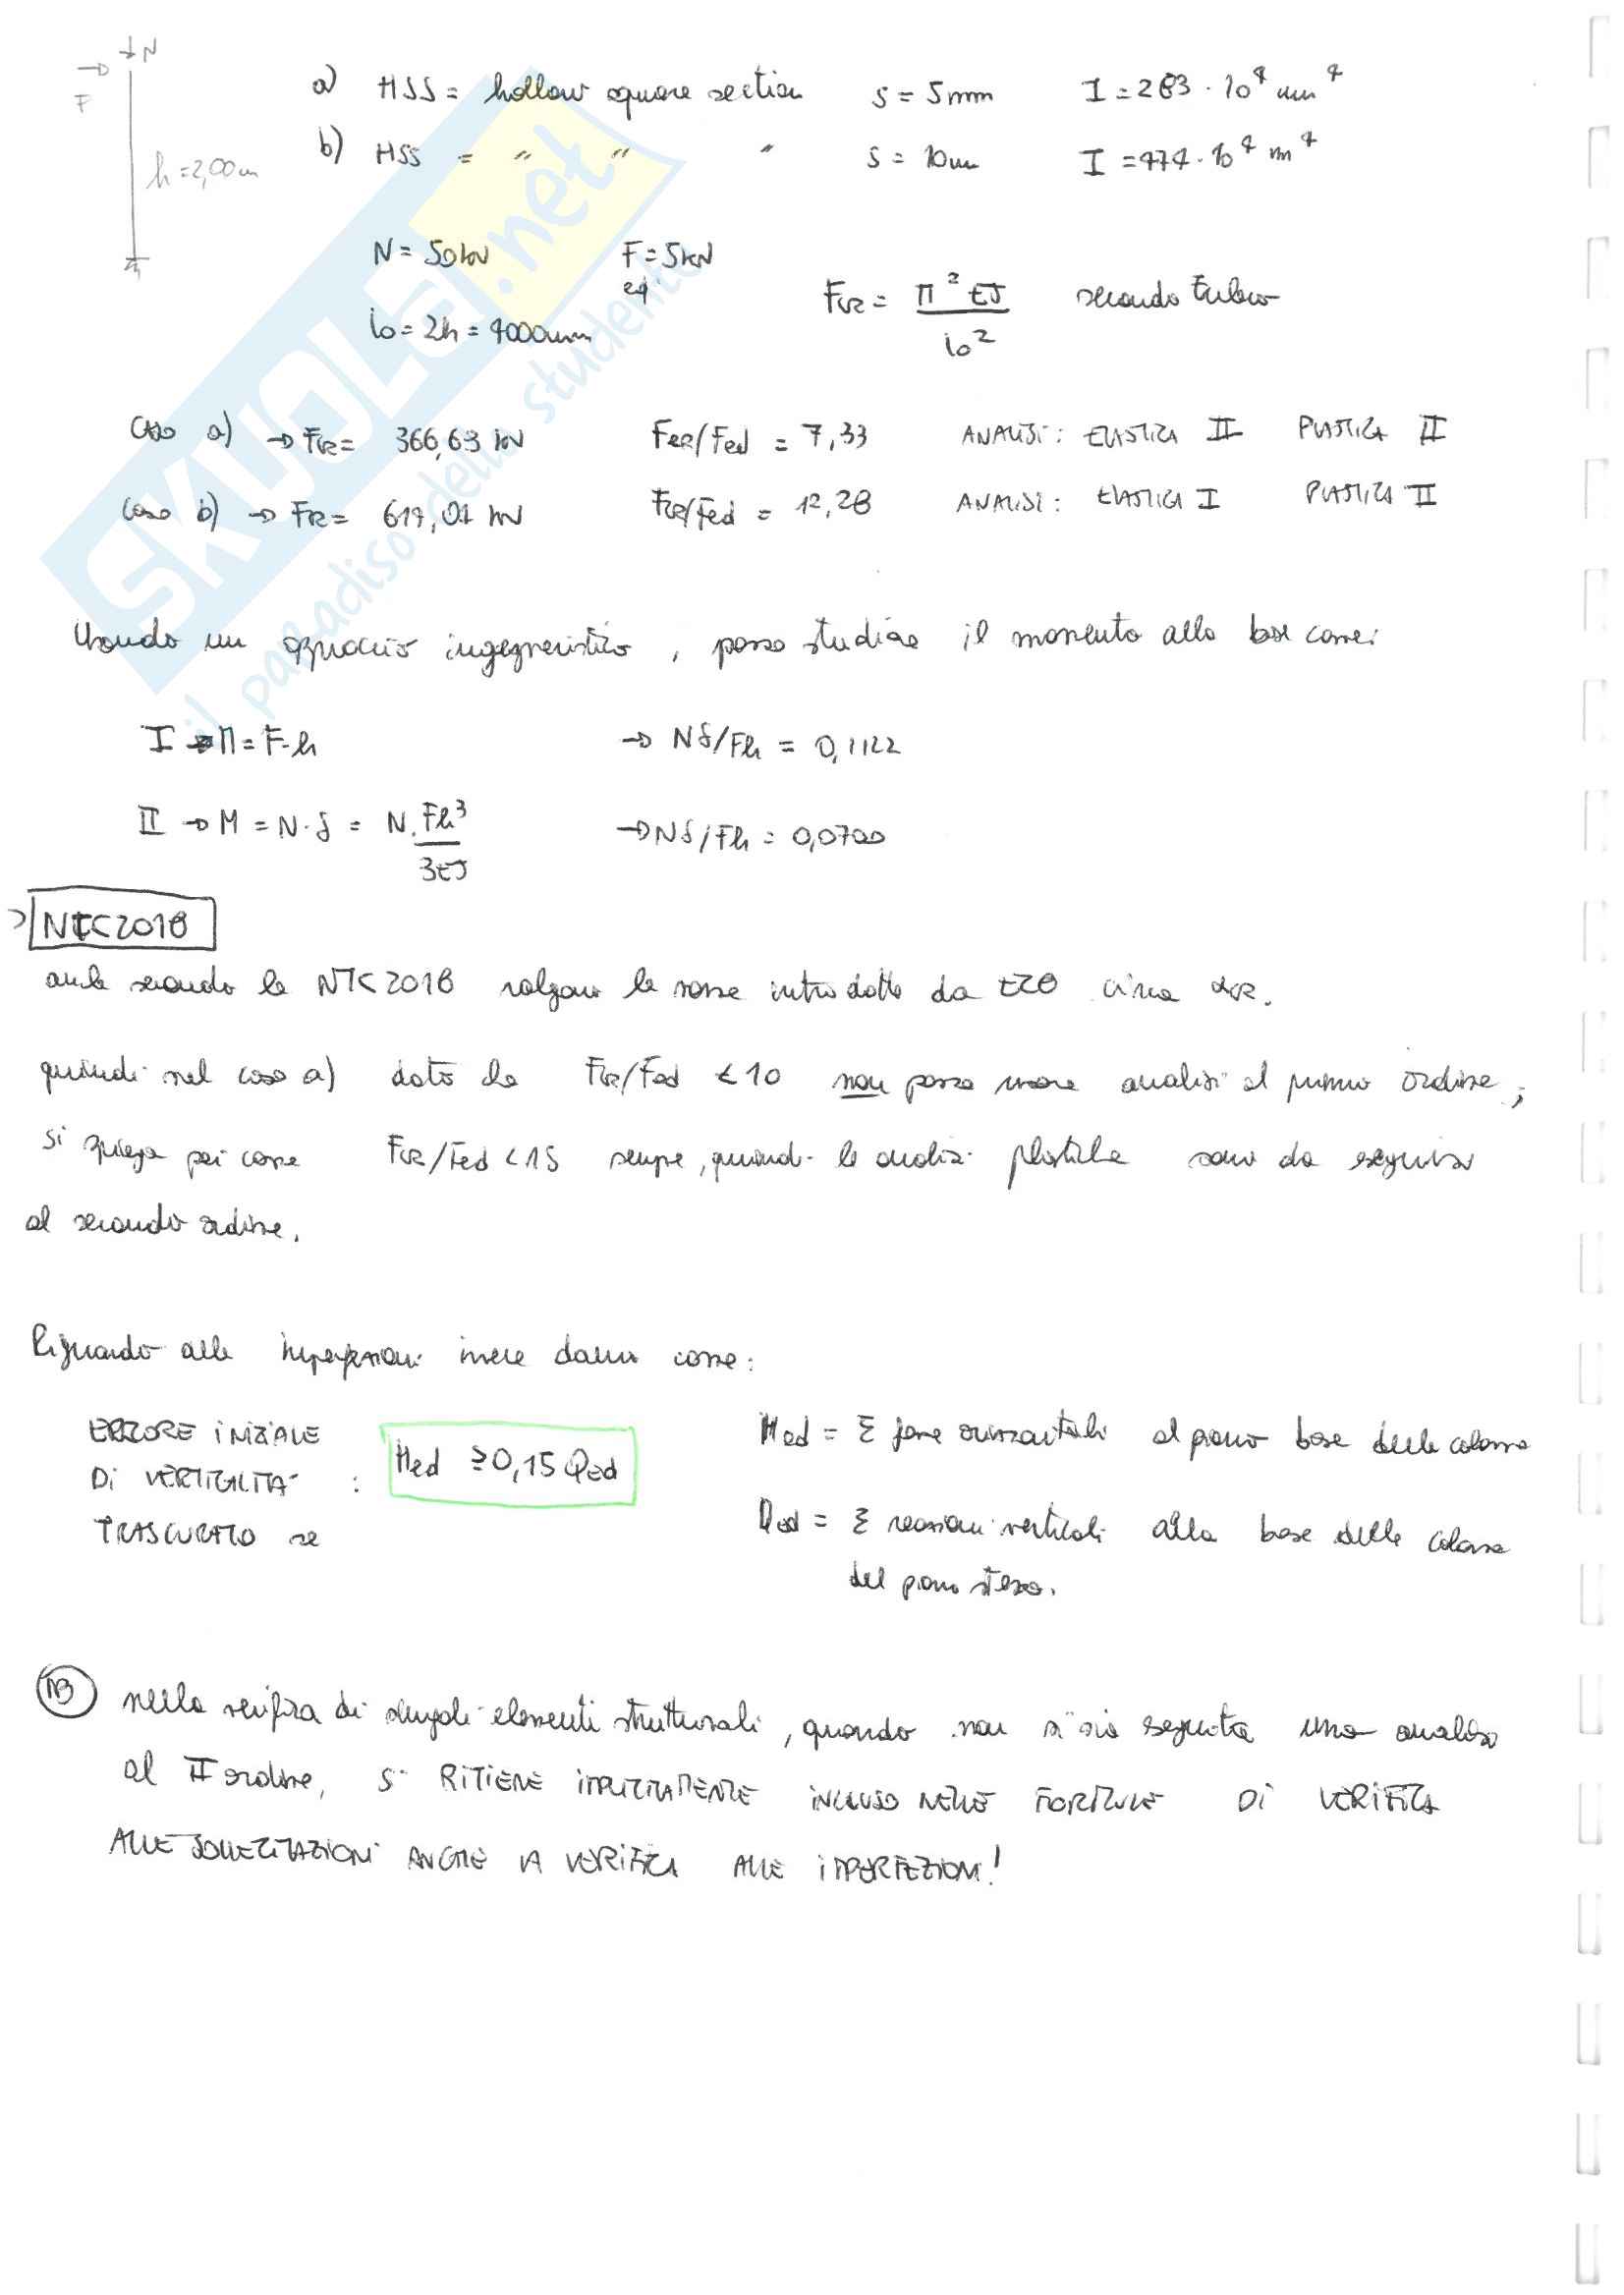 ↓N
→
F
h=2,00m
a) HSS = hollow square section s = 5mm I = 283 · 10⁴ mm⁴
b) HSS = " " " s = 10mm I = 474 · 10⁴ m⁴
N = 50kN F = 5kN
l0 = 2h = 4000mm
Fcr = π² EJ / l0² secondo Eulero
Caso a) → Fcr = 366,63 kN Fcr/Fed = 7,33 ANALISI: ELASTICA II PLASTICA II
Caso b) → Fcr = 614,01 kN Fcr/Fed = 12,28 ANALISI: ELASTICA I PLASTICA II
Usando un approccio ingegneristico, posso studiare il momento alla base come:
I → M = F·h → Nδ/Fh = 0,1122
II → M = N·δ = N·Fh³/3EJ → Nδ/Fh = 0,0700
NTC2018
anche secondo le NTC2018 valgono le stesse introdotte da EC3 circa αcr.
quindi nel caso a) dato che Fcr/Fed < 10 non posso usare analisi al primo ordine;
si spiega poi come Fcr/Fed < 15 sempre, quindi le analisi plastiche sono da eseguirsi
al secondo ordine.
Riguardo alle imperfezioni invece danno come:
ERRORE INIZIALE
DI VERTICALITA' :
TRASCURATO se
Hed ≥ 0,15 Qed
Hed = Σ forze orizzontali al piano base delle colonne
Qed = Σ reazioni verticali alla base delle colonne
del piano stesso.
NB nella verifica di singoli elementi strutturali, quando non si sia eseguita una analisi
al II ordine, si RITIENE IMPLICITAMENTE INCLUSO NELLE FORMULE DI VERIFICA
ALLE SOLLECITAZIONI ANCHE LA VERIFICA ALLE IMPERFEZIONI!
SKUOLA.net
il paradiso dello studente